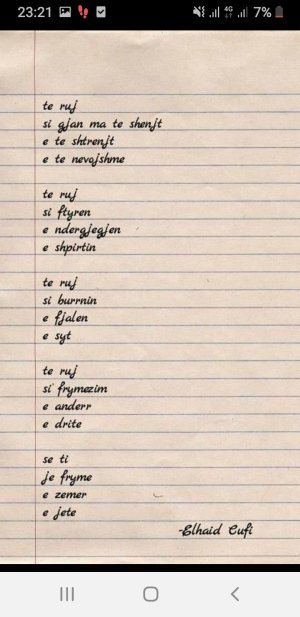 23:21
4G
7%
te ruj
si gjan ma te shenjt
e te shtrenjt
e te nevojshme
te ruj
si ftyren
e ndergjegjen
e shpirtin
te ruj
si burrnin
e fjalen
e syt
te ruj
si frymezim
e anderr
e drite
se ti
je fryme
e zemer
e jete
-Elhaid Cufi